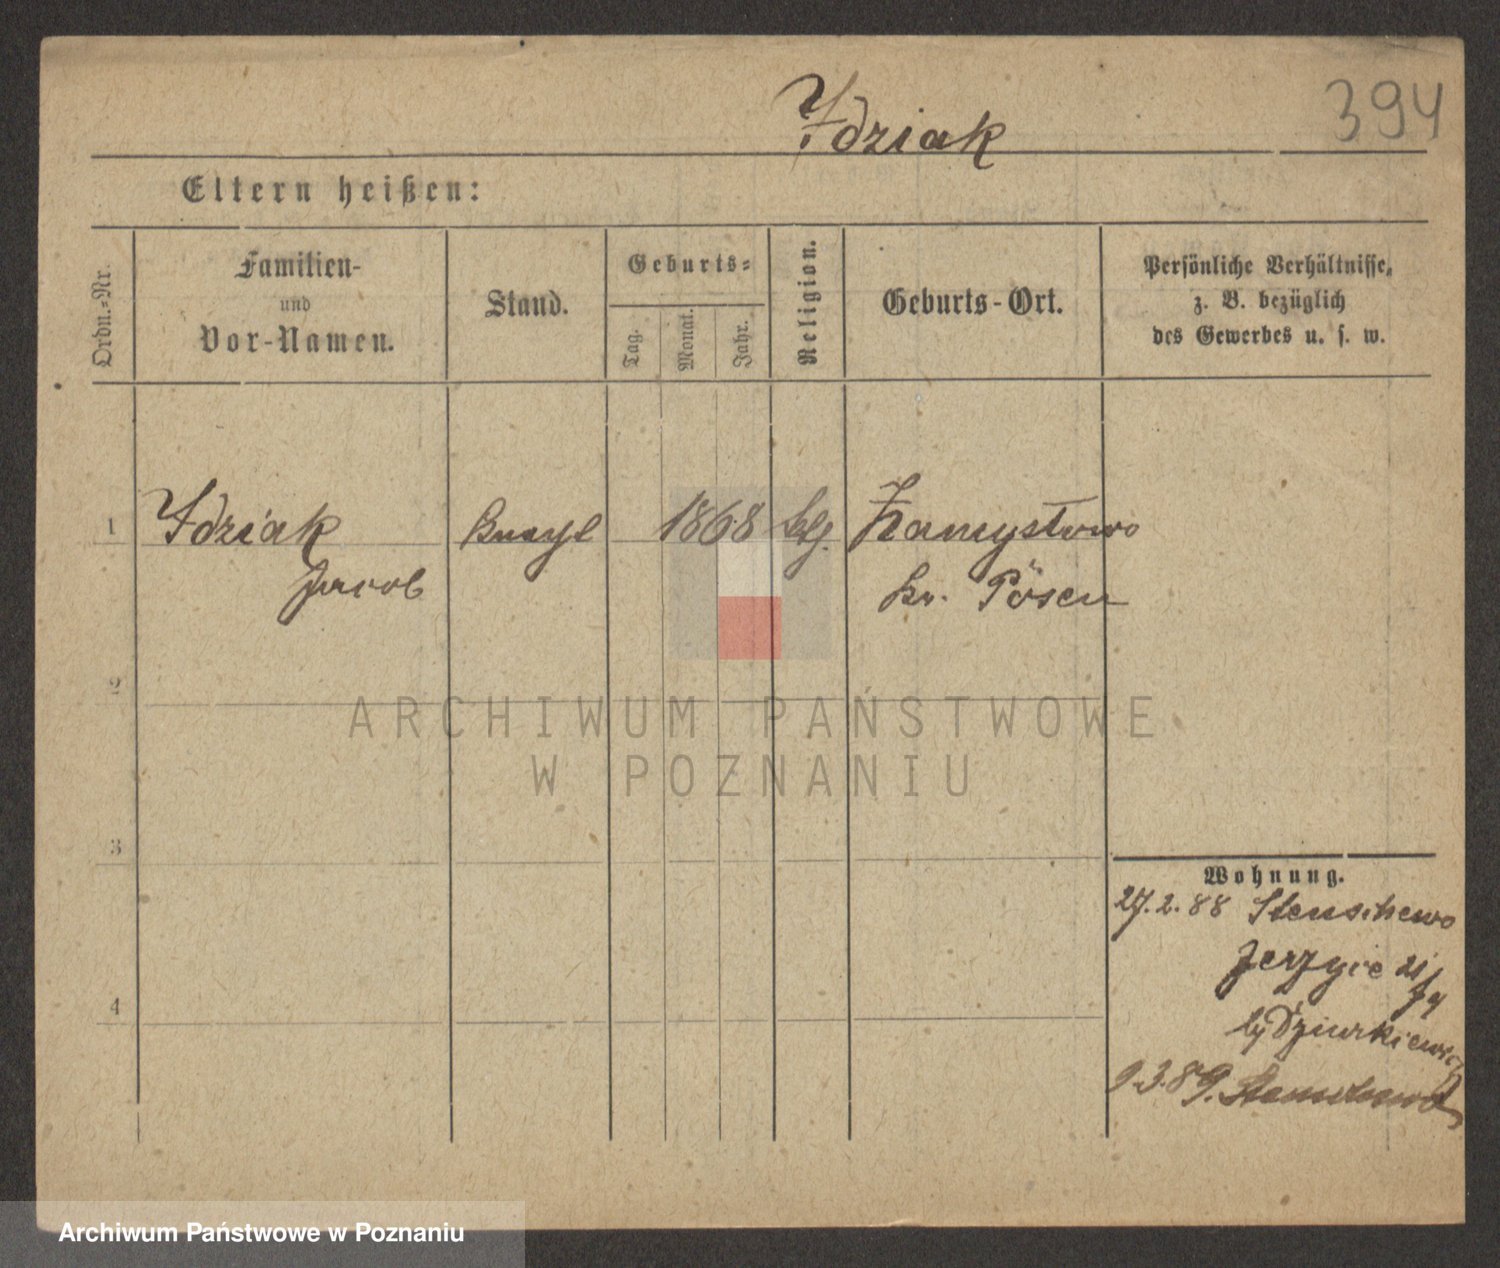 Idziak
394
Eltern heißen:
Ordn.-Nr.
Familien-
und
Vor-Namen.
Stand.
Geburts-
Tag.
Monat.
Jahr.
Religion.
Geburts-Ort.
Persönliche Verhältnisse,
z. B. bezüglich
des Gewerbes u. s. w.
1 Idziak 1868 Zamysłowo
Jacob Kr. Posen
2
ARCHIWUM PAŃSTWOWE
W POZNANIU
3
Wohnung.
27.2.88 Stenschewo
Jerzyce 21
by Dziurkiewicz
4
9.3.89. Stenschewo
Archiwum Państwowe w Poznaniu